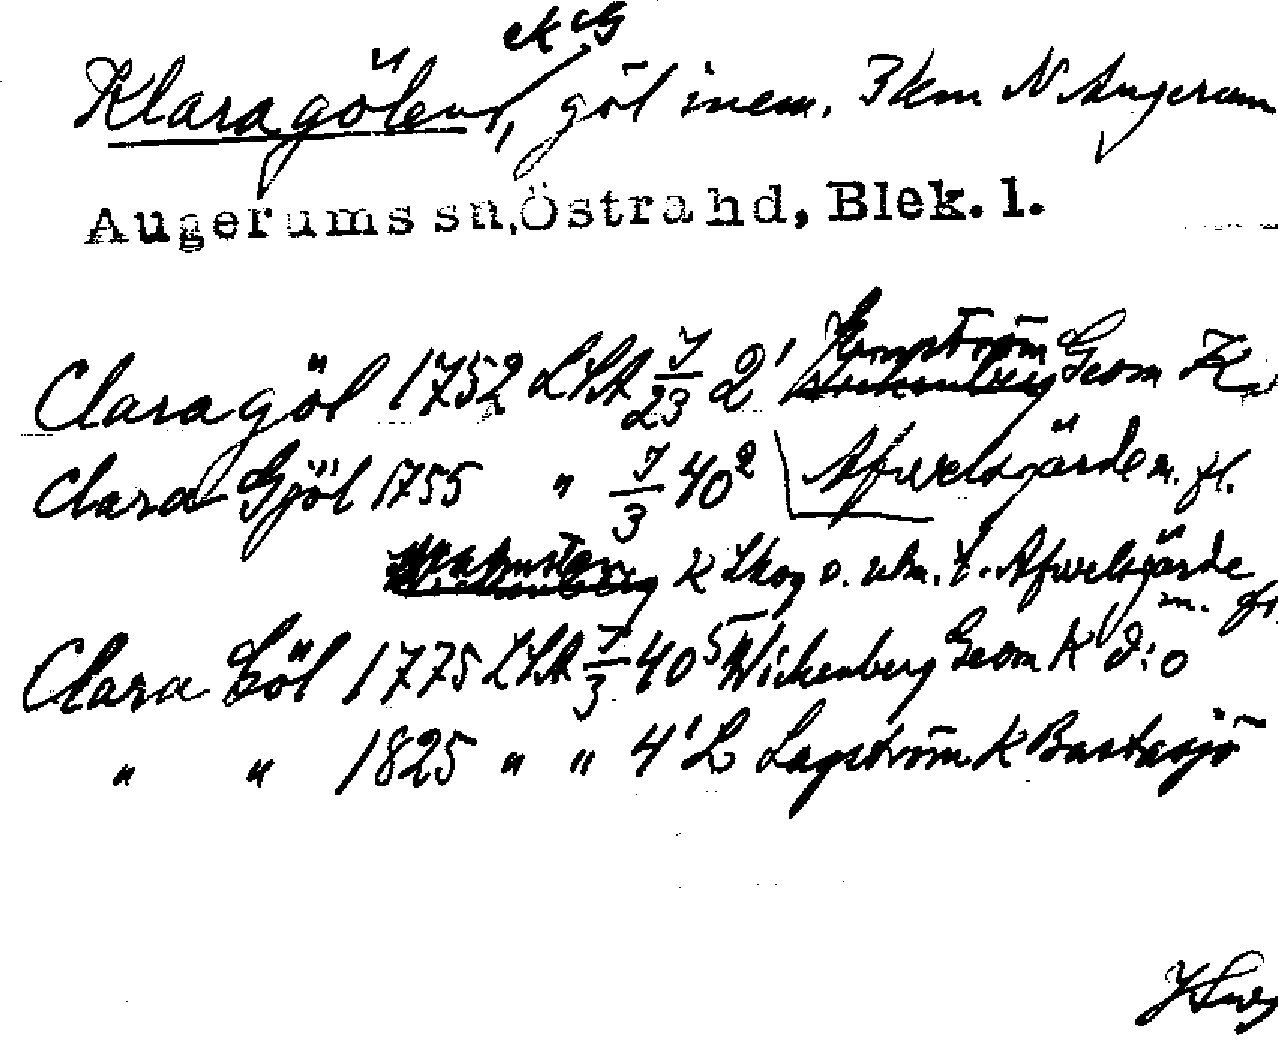 ek G
Klaragölen, göl inem. 3 km N Augerum
Augerums sn, Östra hd, Blek. l.
Clara göl 1752 LSA 7/23 2¹ Geom K
Clara Gjöl 1755 " 7/3 40² Afwelsgärde m. fl.
K Skog o. utm. t. Afwelsgärde m. fl.
Clara Göl 1775 LSA 7/3 40⁵ Wickenberg Geom K d:o
" " 1825 " " 4¹ L Lagström K Bastasjö